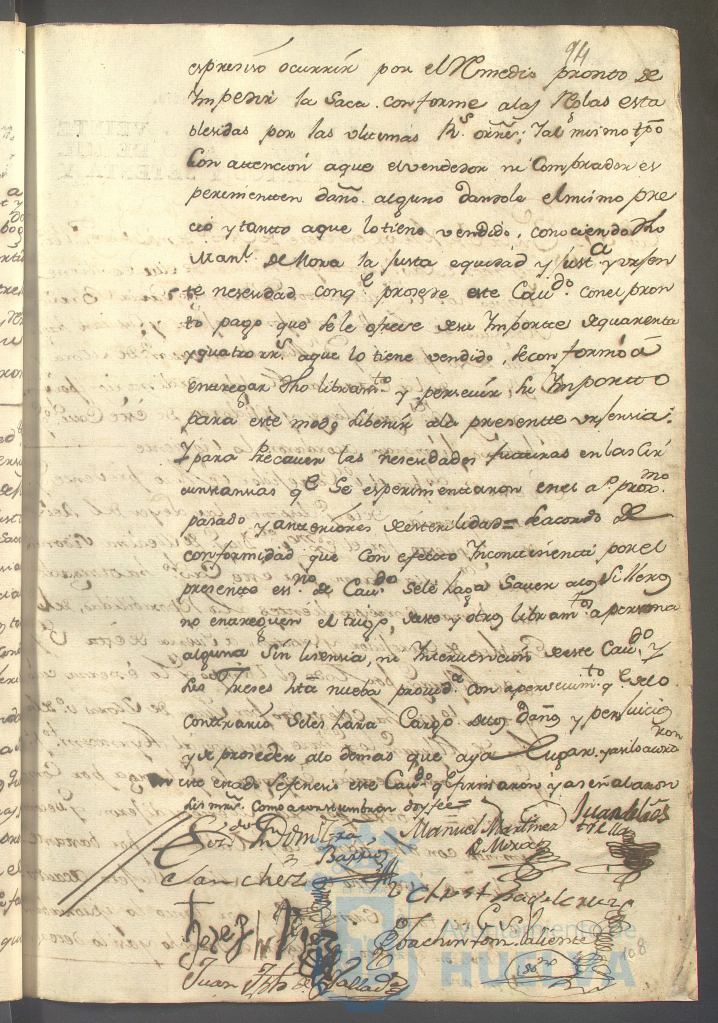 94
espresivo ocurrir por el Remedio pronto de
Impedir la Saca conforme a las Reglas esta
blesidas por las vltimas Rs. ornes. Y al mismo tpo
Con attencion a que el vendedor ni Comprador es
perimienten daño alguno dandole el mismo pre
cio y tanto a que lo tiene vendido, conociendo dho
Manl. de Mora la Justa equidad y just.a y vrsen
te nesesidad con q.e prosede este Cav.do con el pron
to pago que se le ofrese de su Importe de quarenta
y quatro rrs. a que lo tiene vendido, se conformó a
entregar dho libram.to y persevir su Importto
para este modo libenir a la presentte vrsensia.
Y para Precauer las nesesidades futuras en las Cir
cunstansias q.e Se esperimentaron en el a.o prox.mo
pasado y anteriores de esterilidad = Se acordo de
conformidad que con efecto Incontinenti por el
presente ess.no de Cav.do Se le haga Saver a los Silleros
no entreguen el trigo, de este y otros libram.tos a persona
alguna Sin lisensia, ni Intervension de este Cav.do y
Sus Jueses hta nueba provid.a con apersevim.to q.e de lo
contrario Se les hara Cargo de los daños y perjuicios
y de proseder a lo demas que aya Lugar. y asi lo acordaron
en este estado Se fenesio este Cav.do q.e firmaron y a señalaron
Sus mrds. como acostumbran doy fee =
Manuel Martinez
de Mora
Sanchez
Joachin Gom. Valiente
Juan
Ayuntamiento de
HUELVA